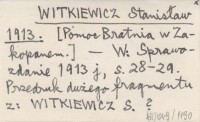 WITKIEWICZ Stanisław
1913. [Pomoc Bratnia w Za-
kopanem.] — W: Sprawo-
zdanie 1913 r, s. 28-29.
Przedruk dużego fragmentu
z: WITKIEWICZ S. ?